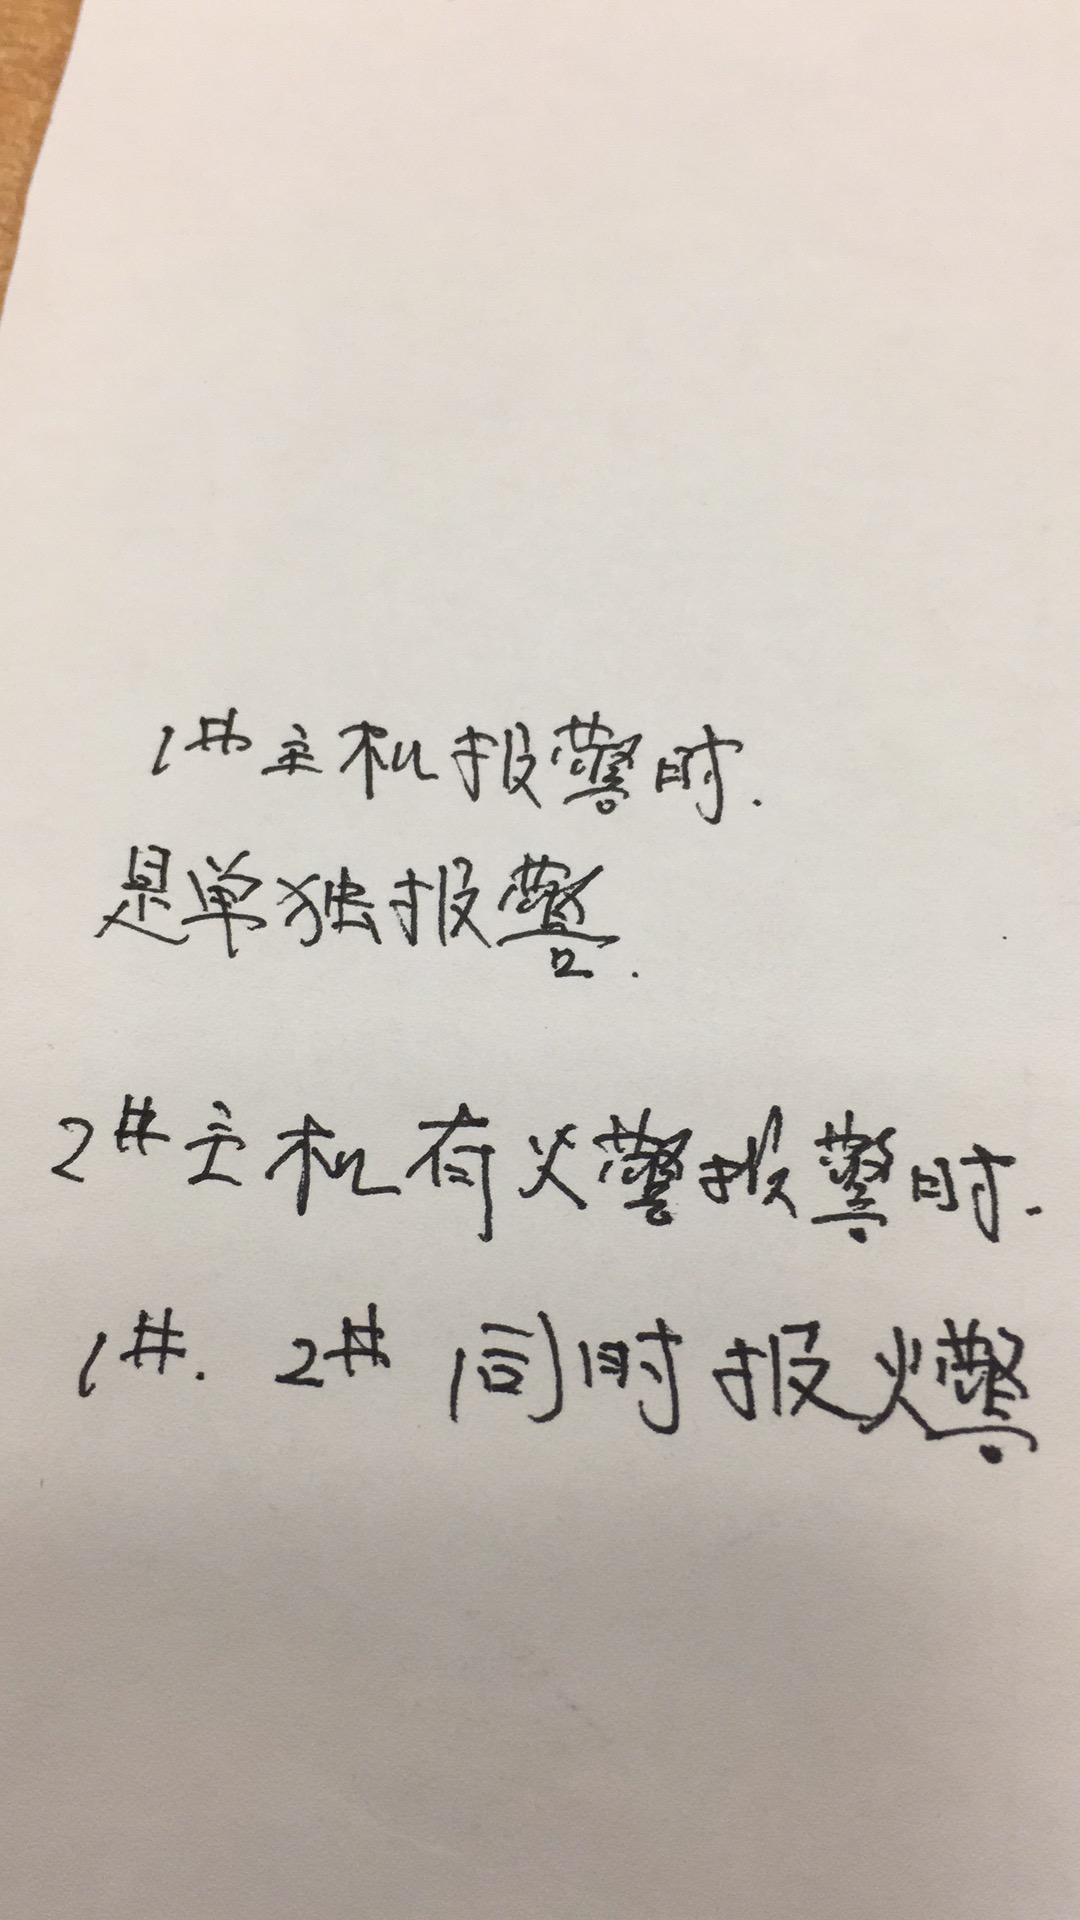 1#主机报警时.
是单独报警.
2#主机有火警报警时.
1#. 2# 同时报火警